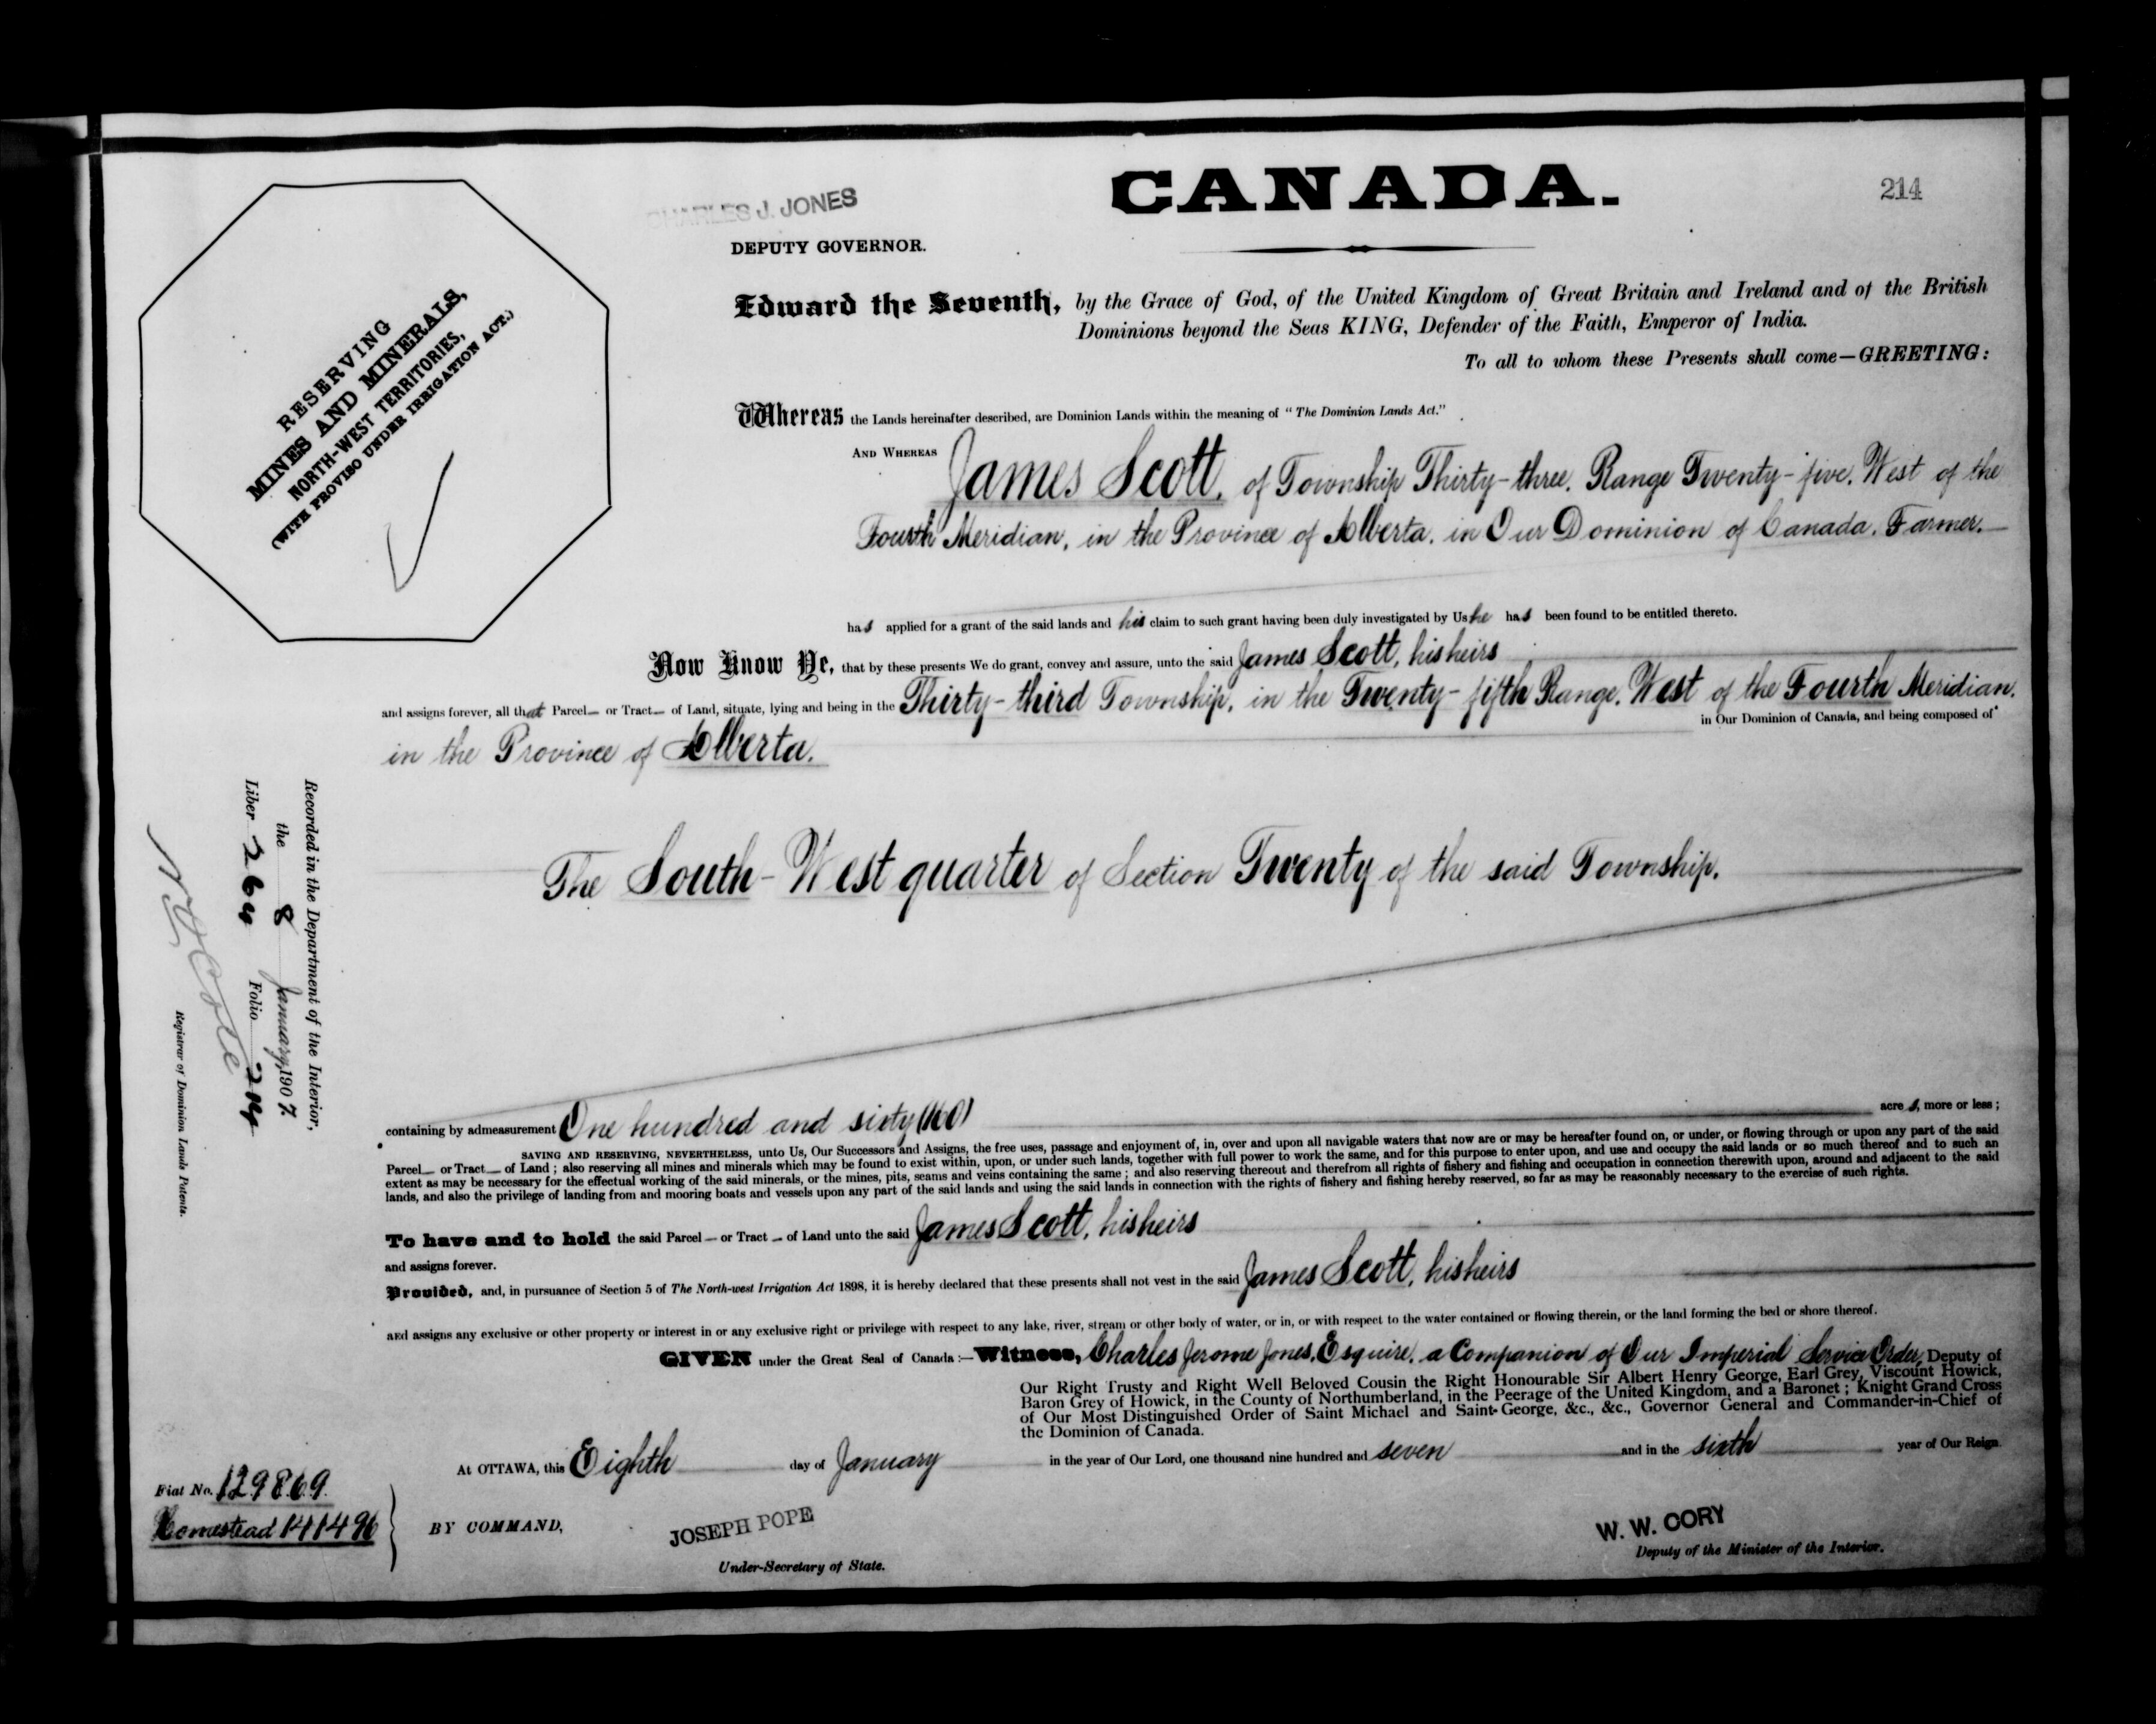 CANADA.
214
CHARLES J. JONES
DEPUTY GOVERNOR.
RESERVING
MINES AND MINERALS,
NORTH-WEST TERRITORIES,
(WITH PROVISO UNDER IRRIGATION ACT.)
Edward the Seventh, by the Grace of God, of the United Kingdom of Great Britain and Ireland and of the British
Dominions beyond the Seas KING, Defender of the Faith, Emperor of India.
To all to whom these Presents shall come—GREETING:
Whereas the Lands hereinafter described, are Dominion Lands within the meaning of "The Dominion Lands Act."
AND WHEREAS James Scott, of Township Thirty-three, Range Twenty-five, West of the
Fourth Meridian, in the Province of Alberta, in Our Dominion of Canada, Farmer.
has applied for a grant of the said lands and his claim to such grant having been duly investigated by Us he has been found to be entitled thereto.
Now Know Ye, that by these presents We do grant, convey and assure, unto the said James Scott, his heirs
and assigns forever, all that Parcel— or Tract— of Land, situate, lying and being in the Thirty-third Township, in the Twenty-fifth Range, West of the Fourth Meridian,
in the Province of Alberta. in Our Dominion of Canada, and being composed of
The South-West quarter of Section Twenty of the said Township.
containing by admeasurement One hundred and sixty (160) acres, more or less;
SAVING AND RESERVING, NEVERTHELESS, unto Us, Our Successors and Assigns, the free uses, passage and enjoyment of, in, over and upon all navigable waters that now are or may be hereafter found on, or under, or flowing through or upon any part of the said
Parcel— or Tract— of Land; also reserving all mines and minerals which may be found to exist within, upon, or under such lands, together with full power to work the same, and for this purpose to enter upon, and use and occupy the said lands or so much thereof and to such an
extent as may be necessary for the effectual working of the said minerals, or the mines, pits, seams and veins containing the same; and also reserving thereout and therefrom all rights of fishery and fishing and occupation in connection therewith upon, around and adjacent to the said
lands, and also the privilege of landing from and mooring boats and vessels upon any part of the said lands and using the said lands in connection with the rights of fishery and fishing hereby reserved, so far as may be reasonably necessary to the exercise of such rights.
To have and to hold the said Parcel — or Tract — of Land unto the said James Scott, his heirs
and assigns forever.
Provided, and, in pursuance of Section 5 of The North-west Irrigation Act 1898, it is hereby declared that these presents shall not vest in the said James Scott, his heirs
and assigns any exclusive or other property or interest in or any exclusive right or privilege with respect to any lake, river, stream or other body of water, or in, or with respect to the water contained or flowing therein, or the land forming the bed or shore thereof.
GIVEN under the Great Seal of Canada:—Witness, Charles Jerome Jones, Esquire, a Companion of Our Imperial Service Order, Deputy of
Our Right Trusty and Right Well Beloved Cousin the Right Honourable Sir Albert Henry George, Earl Grey, Viscount Howick,
Baron Grey of Howick, in the County of Northumberland, in the Peerage of the United Kingdom, and a Baronet; Knight Grand Cross
of Our Most Distinguished Order of Saint Michael and Saint-George, &c., &c., Governor General and Commander-in-Chief of
the Dominion of Canada.
At OTTAWA, this Eighth day of January in the year of Our Lord, one thousand nine hundred and seven and in the sixth year of Our Reign.
Fiat No. 129869.
Homestead 141496
BY COMMAND,
JOSEPH POPE
Under-Secretary of State.
W. W. CORY
Deputy of the Minister of the Interior.
Recorded in the Department of the Interior,
the 8 January, 1907.
Liber 264 Folio 214
Registrar of Dominion Lands Patents.